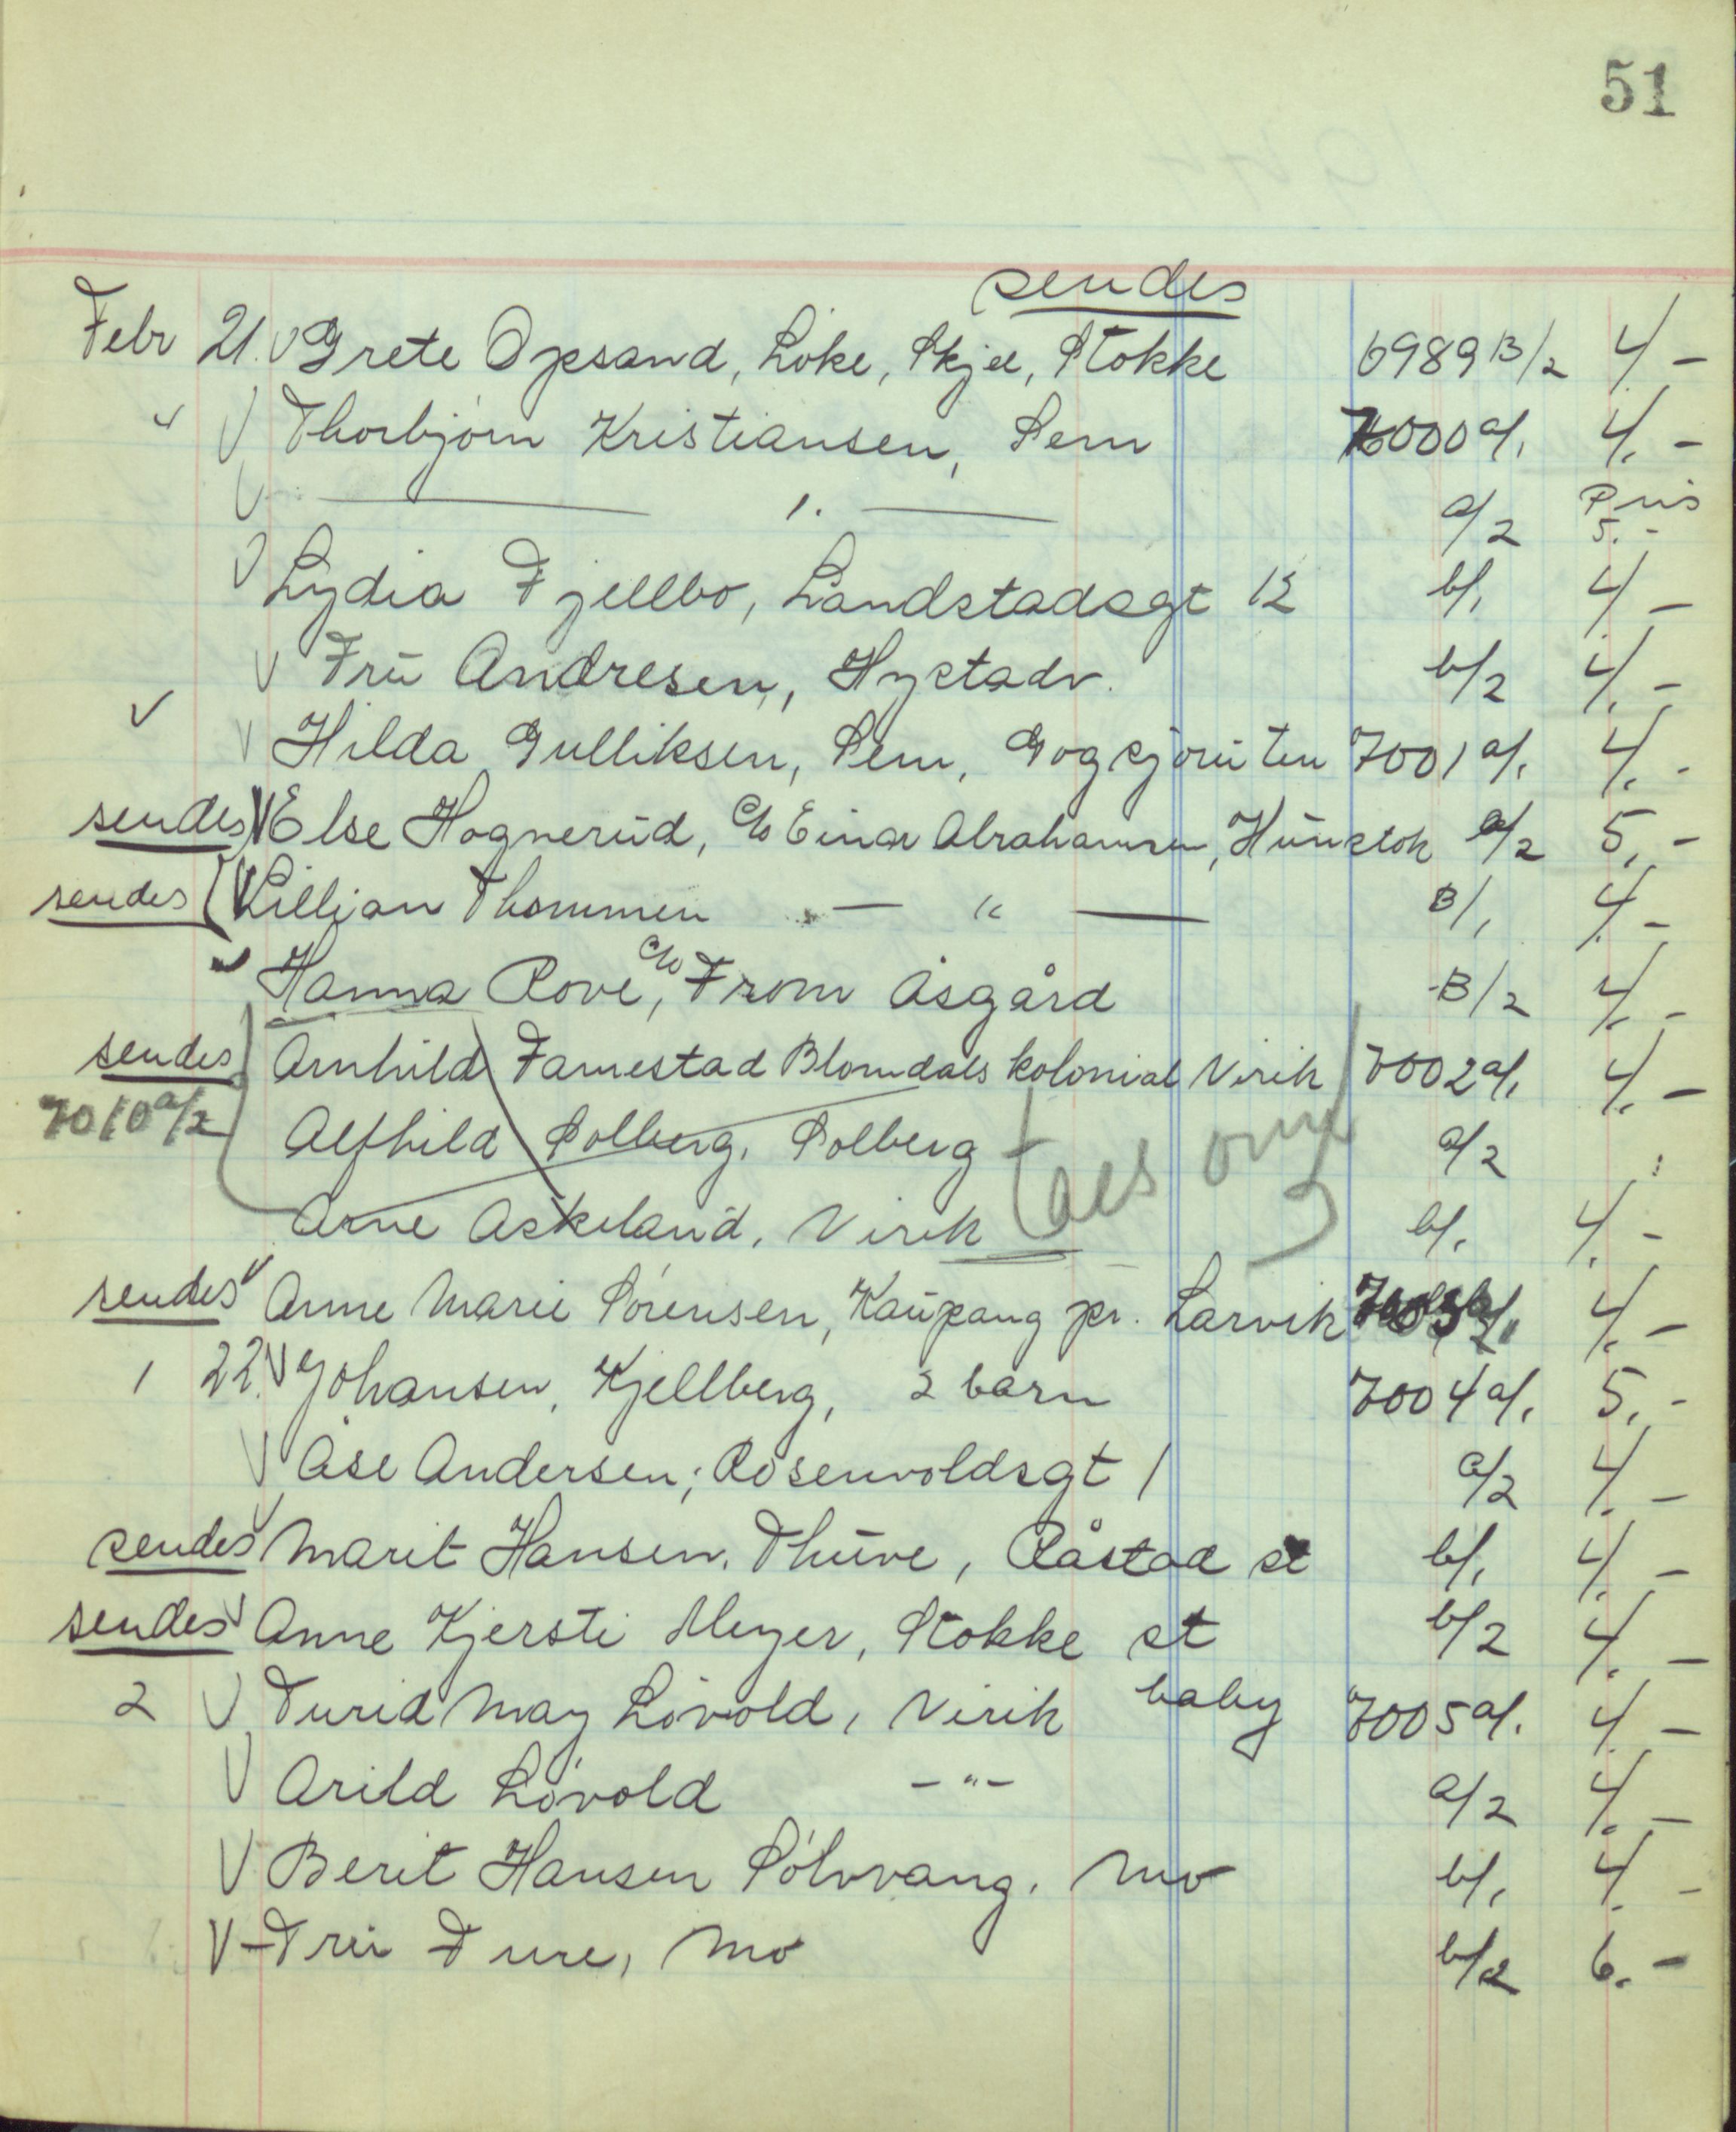 51
sendes
Febr 21. V Grete Opsand, Løke, Skjee, Stokke 6989 B/2 4.-
" V Thorbjørn Kristiansen, Sem 7000 a/1 4.-
V —— " —— a/2 Pris 5.-
V Lydia Fjellbo, Landstadsgt 12 b/1 4.-
V Fru Andresen, Hystadv. b/2 4.-
V V Hilda Gulliksen, Sem, Gogsjøruten 7001 a/1 4.-
sendes V Else Hognerud, c/o Einar Abrahamsen, Hunstok a/2 5.-
sendes V Lillian Thommen — " — B/1 4.-
V Hanna Rove, c/o From Åsgård B/2 4.-
sendes Arnhild Famestad Blomdals kolonial Virik 7002 a/1 4.-
7010 a/2 Alfhild Solberg, Solberg a/2
taes om
Arne Askeland, Virik b/1 4.-
sendes V Anne Marie Sørensen, Kaupang pr. Larvik 4.-
1 22. V Johansen, Kjellberg, 2 barn 7004 a/1 5.-
V Åse Andersen, Rosenvoldsgt 1 a/2 4.-
sendes V Marit Hansen, Thuve, Råstad st b/1 4.-
sendes V Anne Kjersti Meyer, Stokke st b/2 4.-
2 V Turid May Løvold, Virik baby 7005 a/1 4.-
V Arild Løvold -"- a/2 4.-
V Berit Hansen Sølvvang, Mo b/1 4.-
V Fru Fure, Mo b/2 6.-